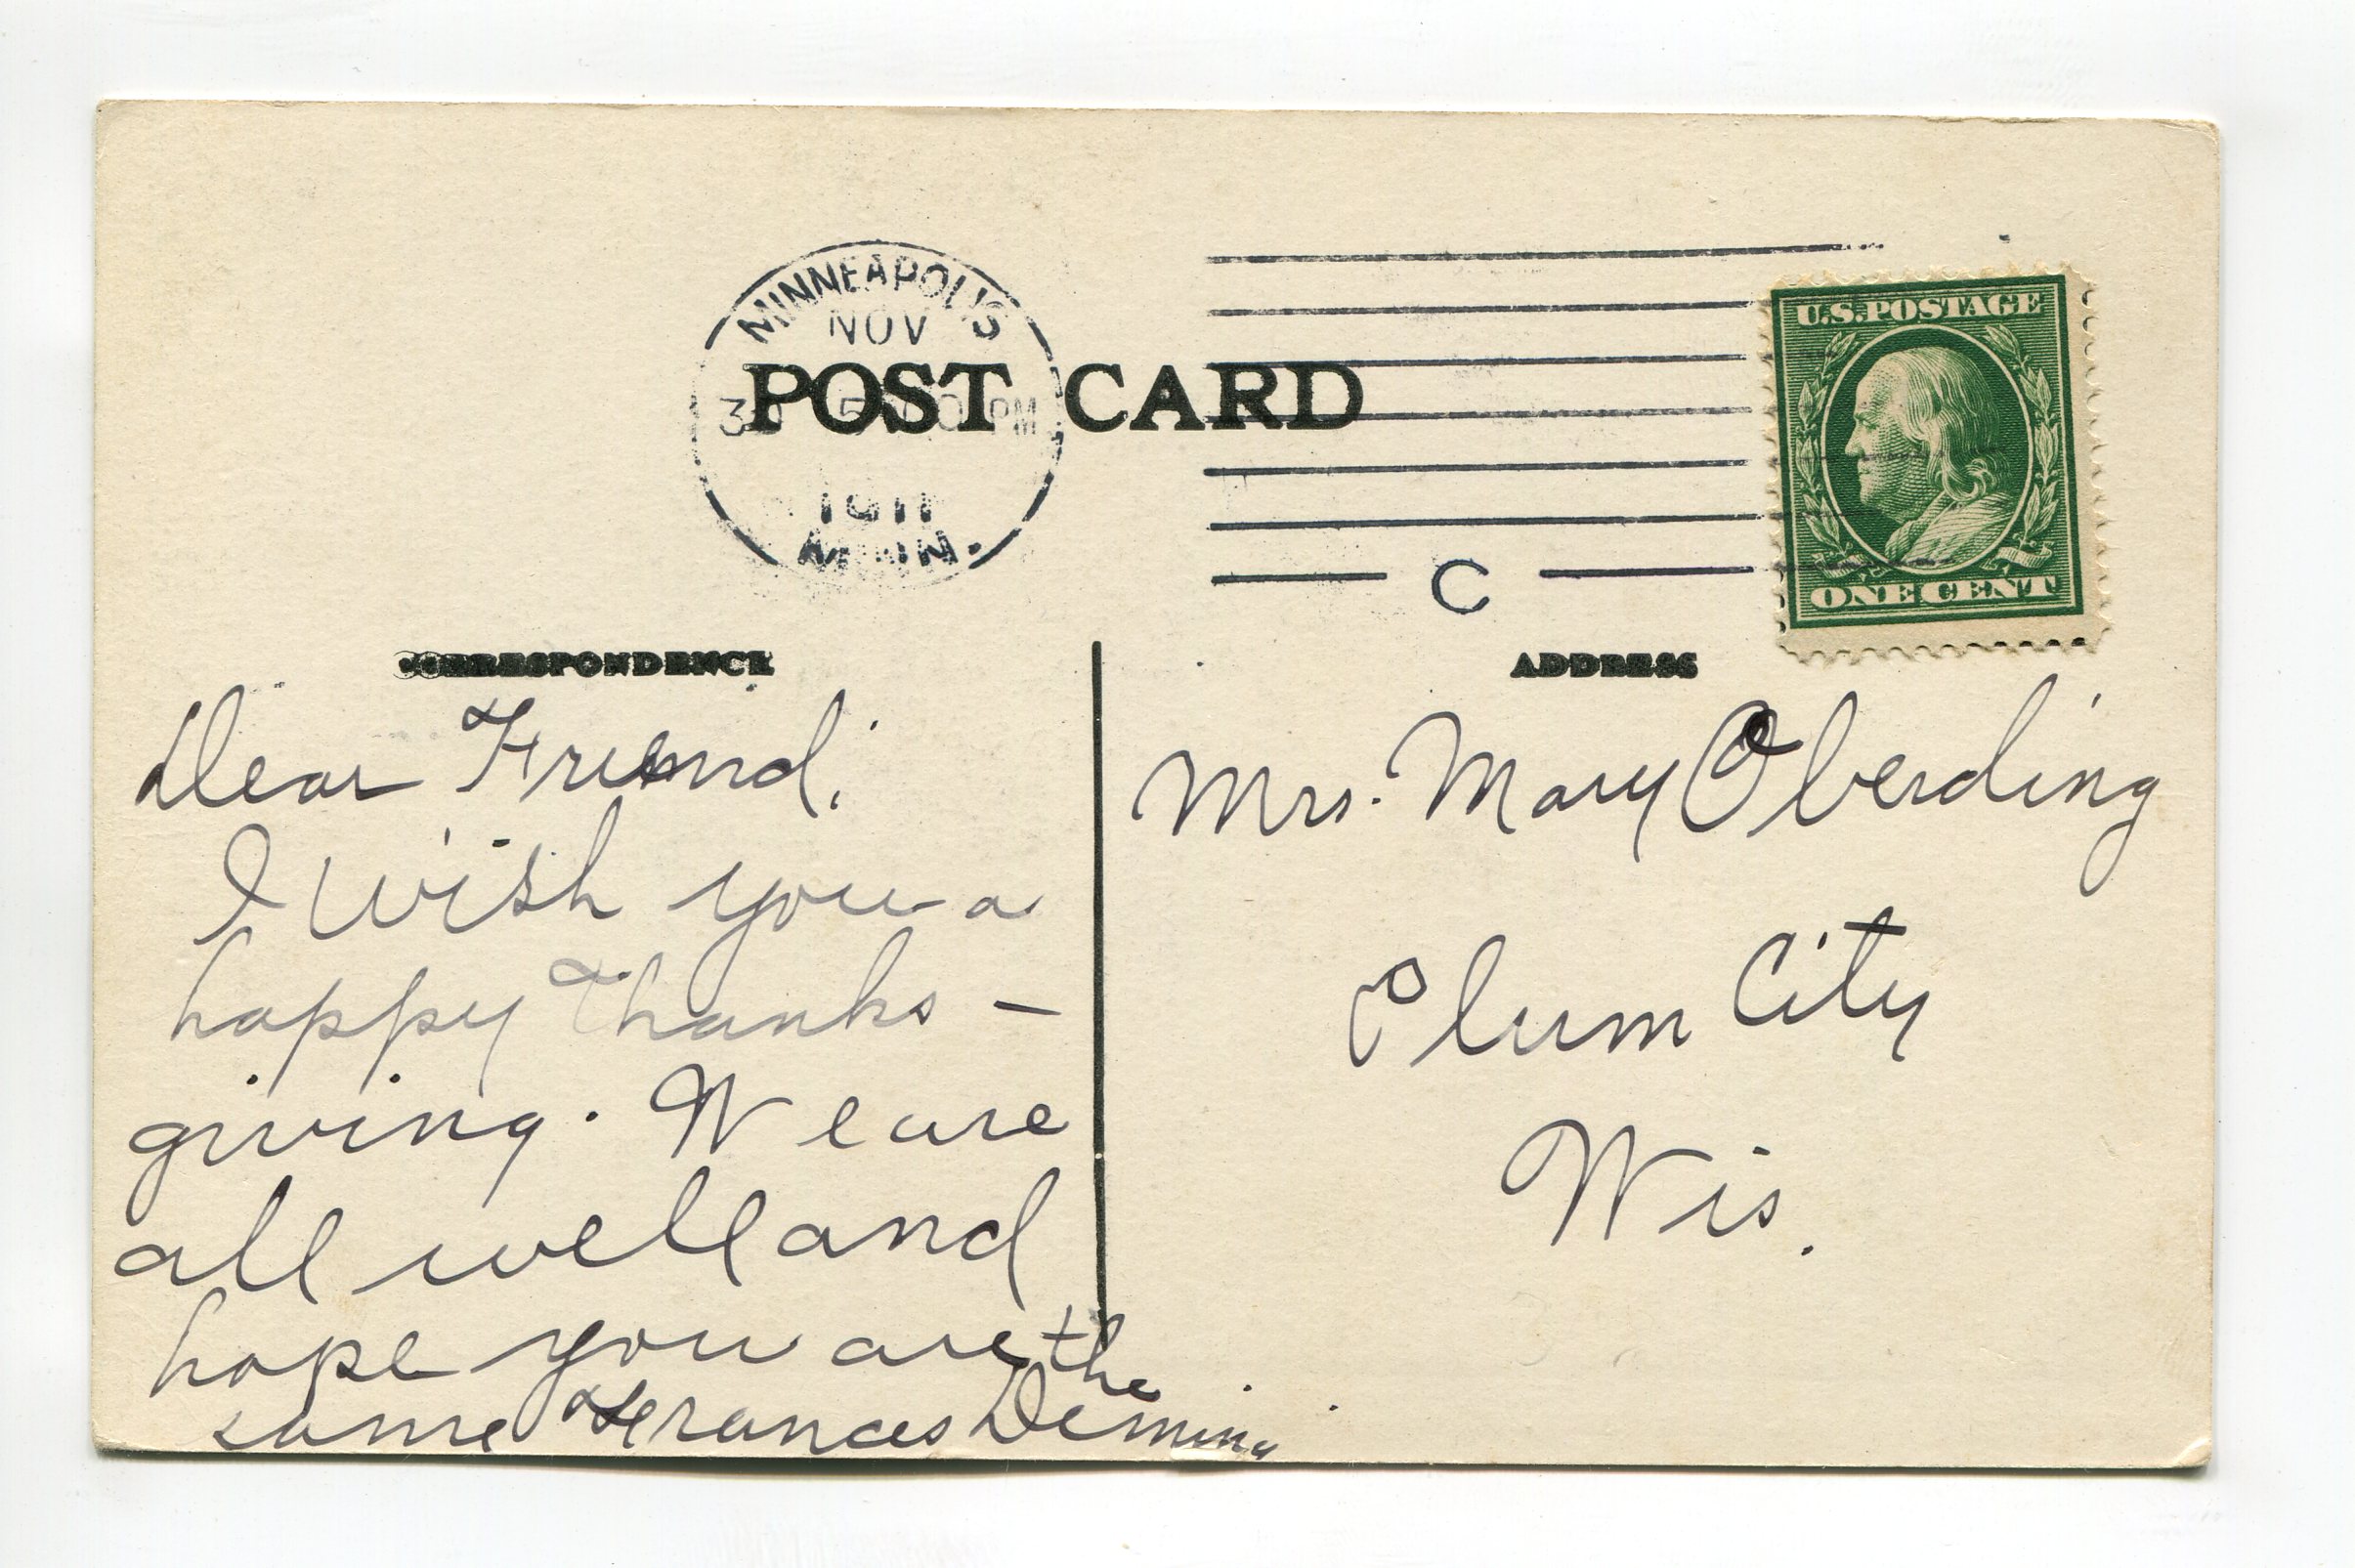 MINNEAPOLIS
NOV
30 PM
1911
MINN.
POST CARD
C
U.S. POSTAGE
ONE CENT
CORRESPONDENCE
Dear Friend,
I wish you a
happy Thanks-
giving. We are
all well and
hope you are the
same Frances Deming
ADDRESS
Mrs. Mary Oberding
Plum City
Wis.